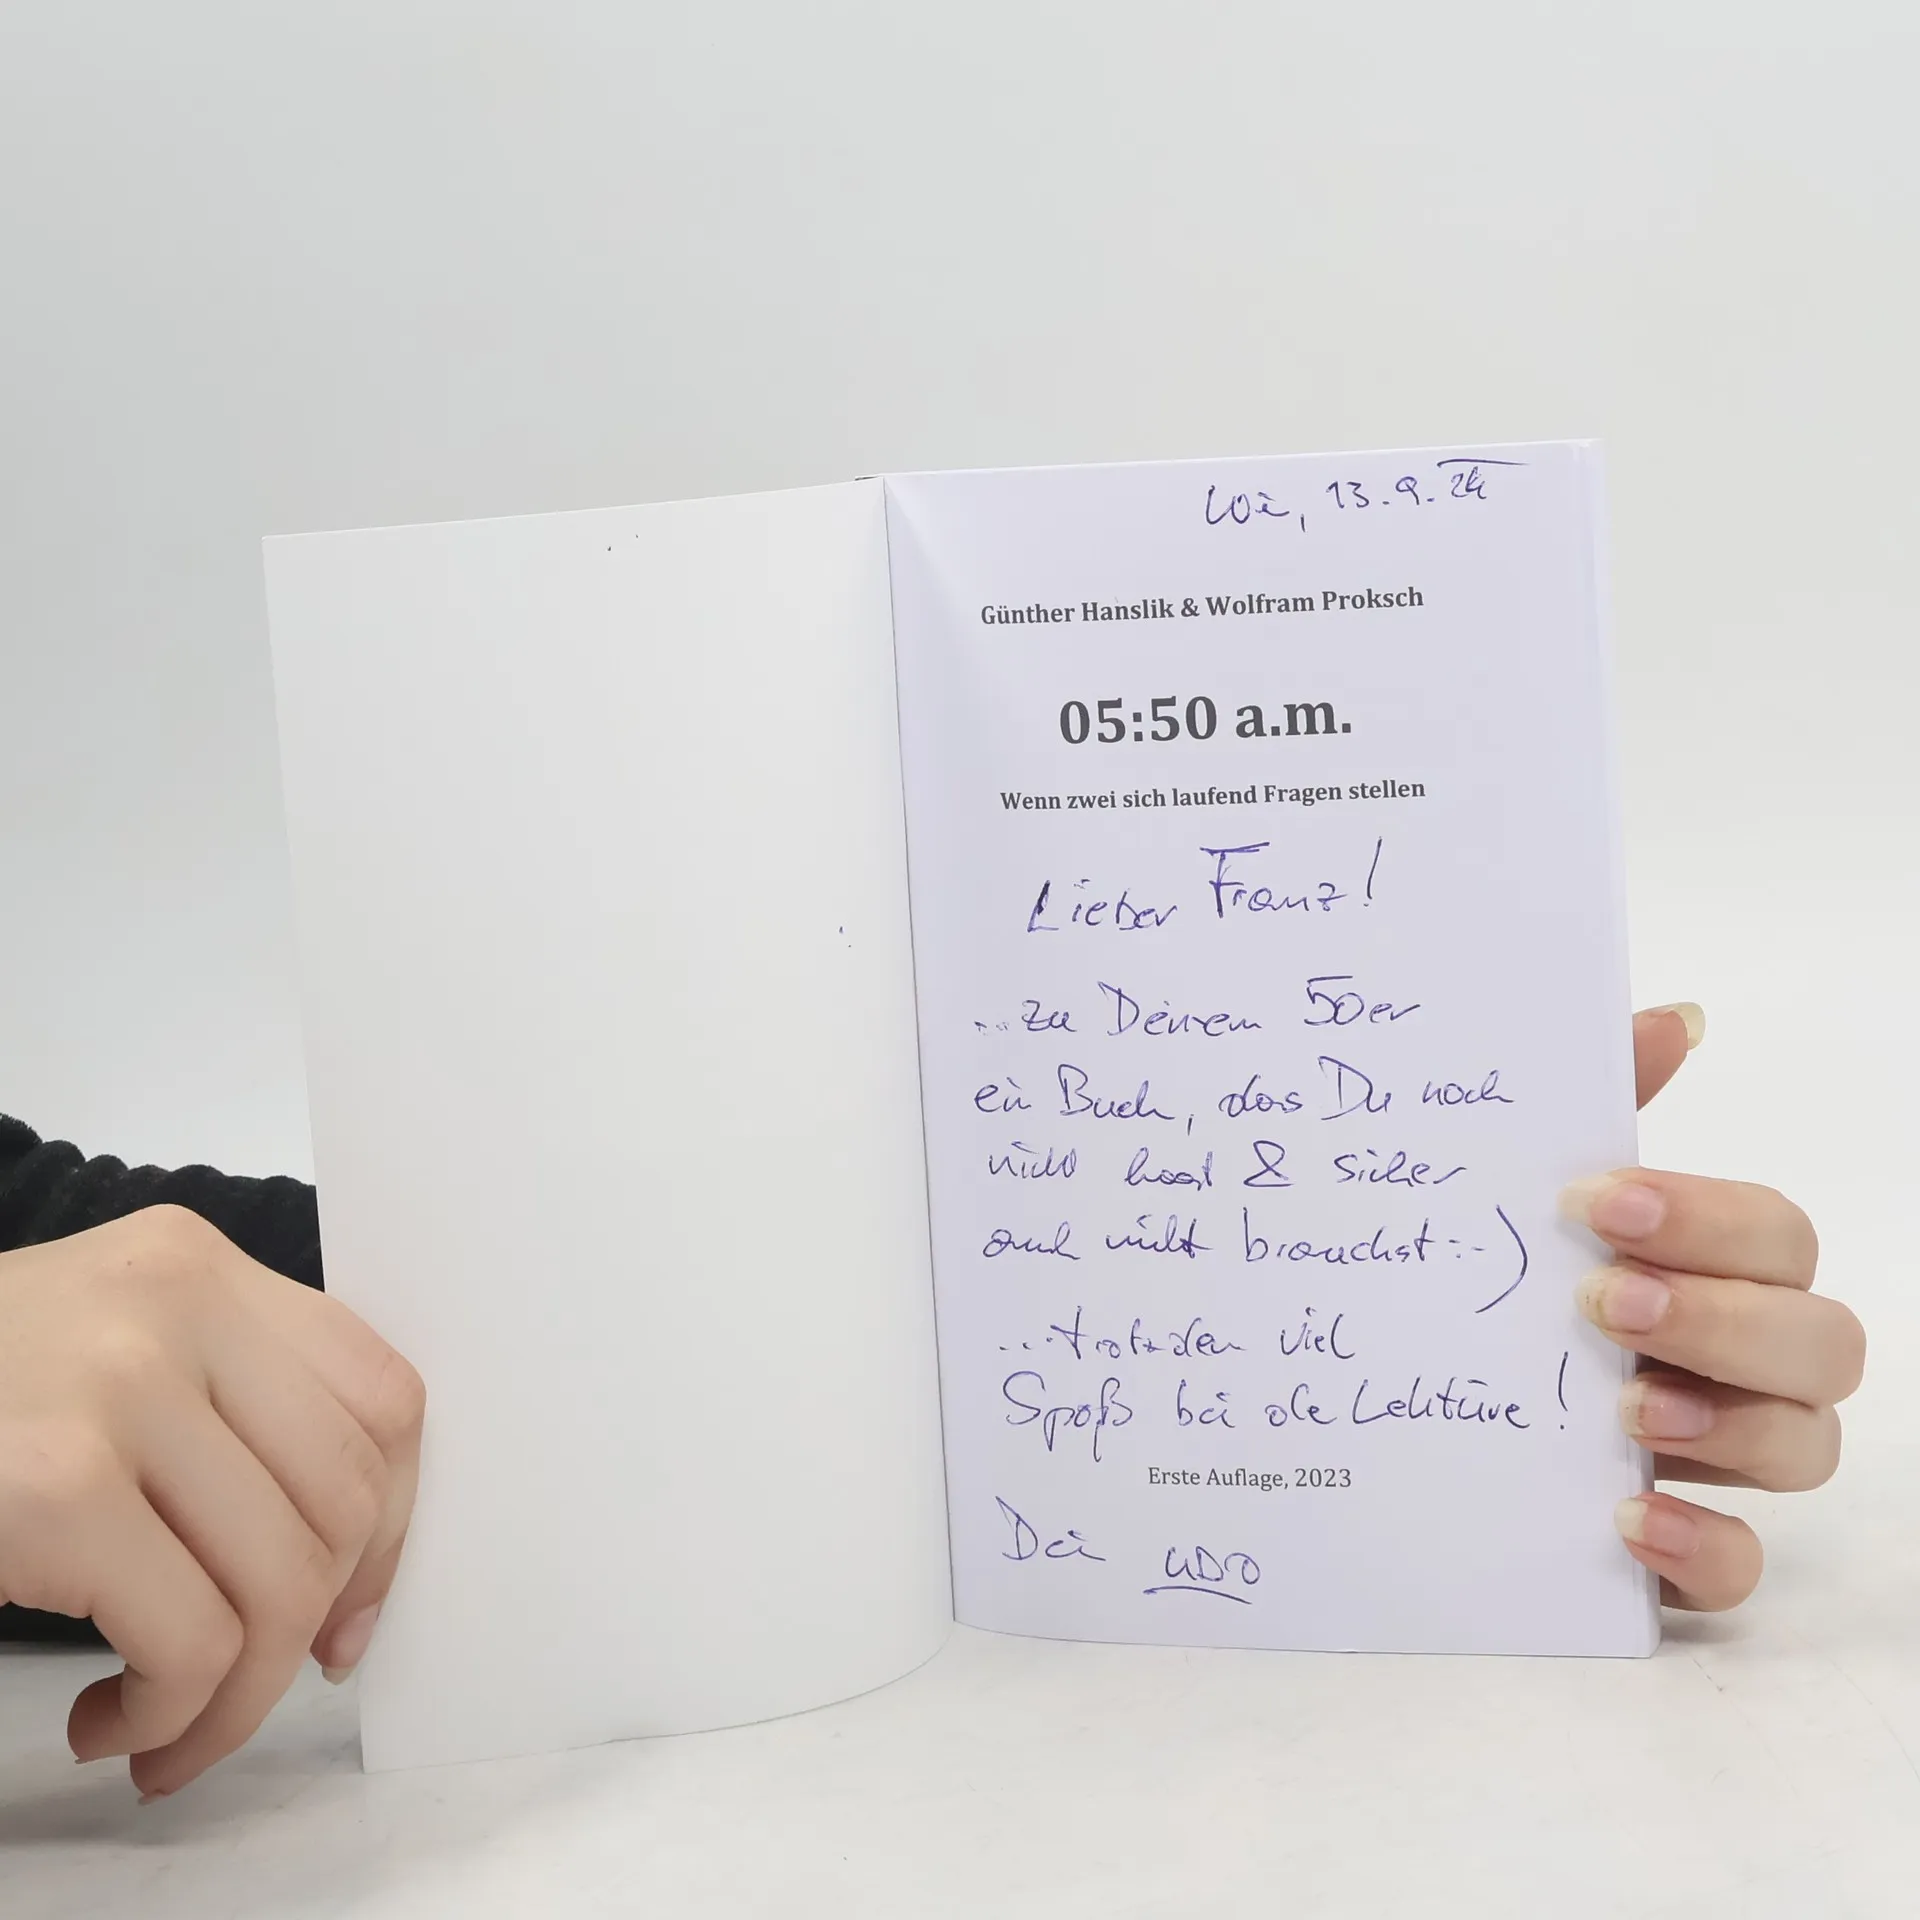 Wi, 13.9.24
Günther Hanslik & Wolfram Proksch
05:50 a.m.
Wenn zwei sich laufend Fragen stellen
Lieber Franz!
...zu Deinem 50er
ein Buch, das Du noch
nicht hast & sicher
auch nicht brauchst :-)
...trotzdem viel
Spaß bei der Lektüre!
Erste Auflage, 2023
Dein UDO